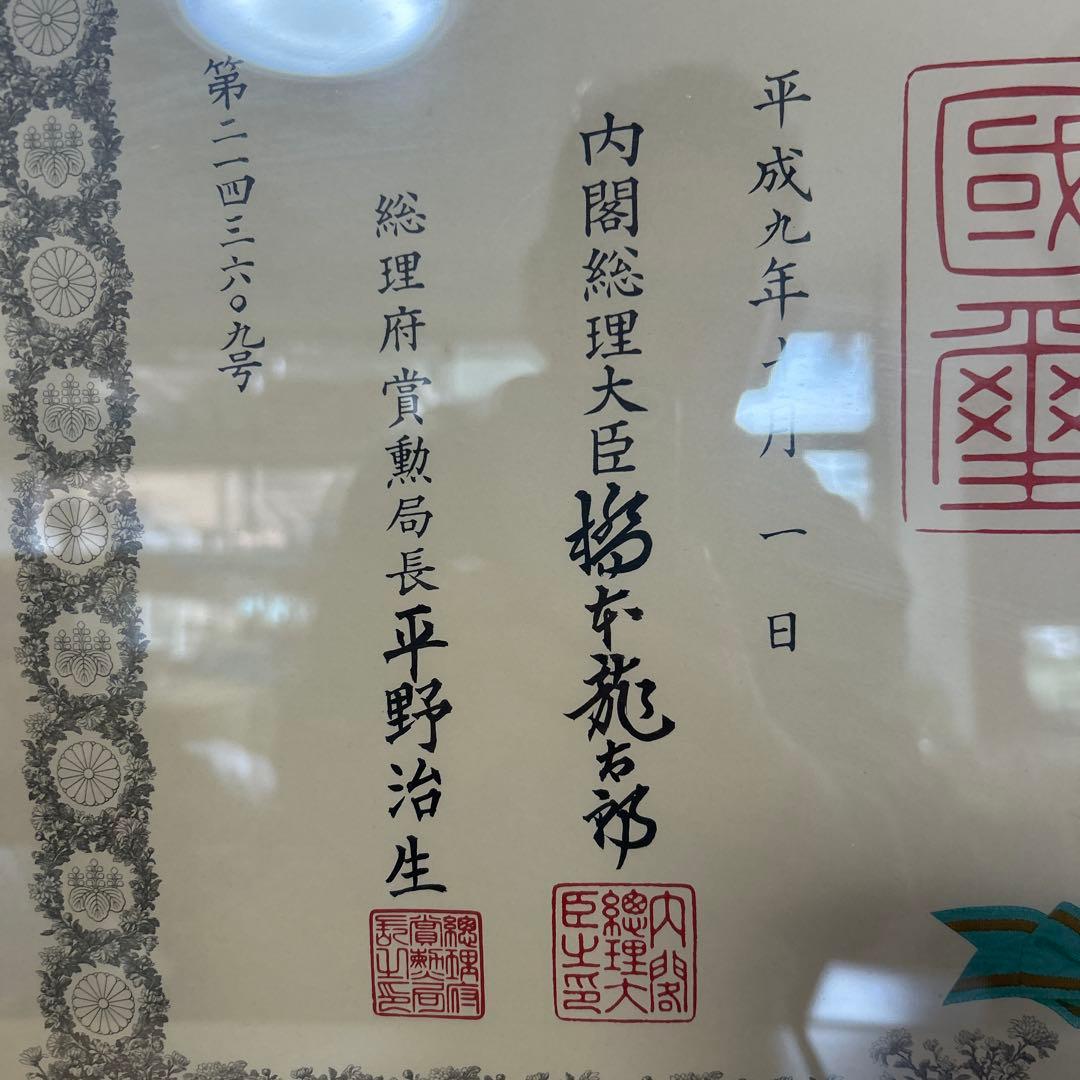 國璽
平成九年 月一日
内閣総理大臣橋本龍太郎
内閣
總理大
臣之印
総理府賞勲局長平野治生
總理府
賞勲局
長之印
第二一四三六〇九号